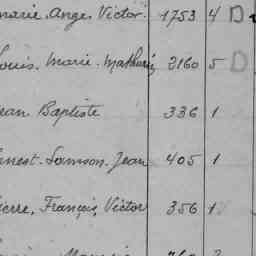 marie. Ange. Victor. 1753 4 D
Louis. Marie. Mathurin 2160 5 D
Jean Baptiste 336 1
Ernest. Samson. Jean 405 1
Pierre, François, Victor 356 1